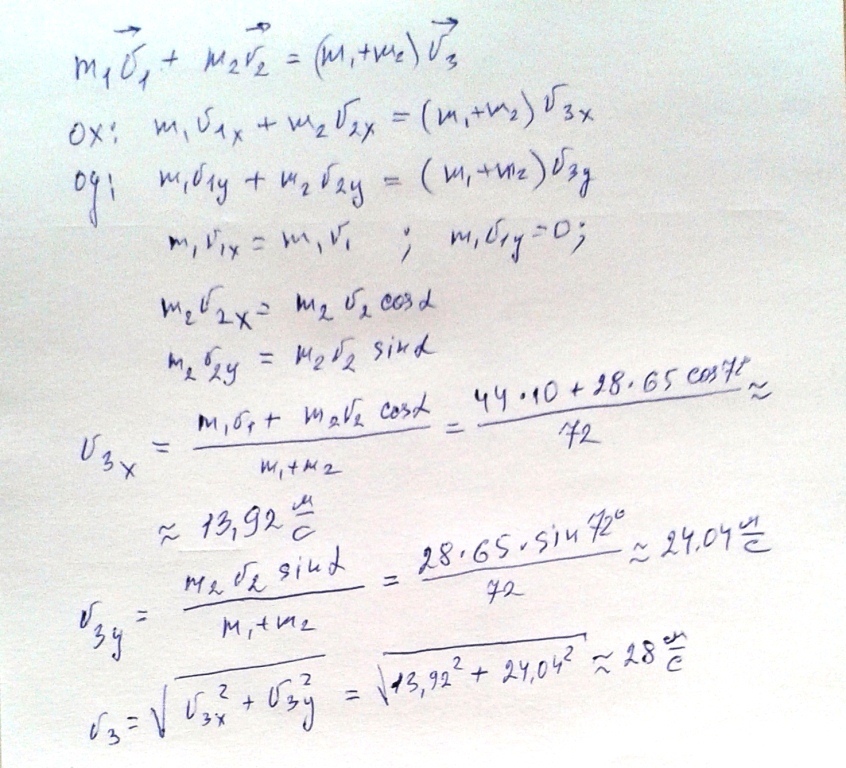 m₁v⃗₁ + m₂v⃗₂ = (m₁+m₂)v⃗₃
ox: m₁v₁ₓ + m₂v₂ₓ = (m₁+m₂)v₃ₓ
oy: m₁v₁y + m₂v₂y = (m₁+m₂)v₃y
m₁v₁ₓ = m₁v₁ ; m₁v₁y = 0;
m₂v₂ₓ = m₂v₂ cosα
m₂v₂y = m₂v₂ sinα
v₃ₓ = (m₁v₁ + m₂v₂ cosα)/(m₁+m₂) = (44·10 + 28·65 cos72°)/72 ≈
≈ 13,92 м/с
v₃y = (m₂v₂ sinα)/(m₁+m₂) = (28·65·sin72°)/72 ≈ 24,04 м/с
v₃ = √(v₃ₓ² + v₃y²) = √(13,92² + 24,04²) ≈ 28 м/с